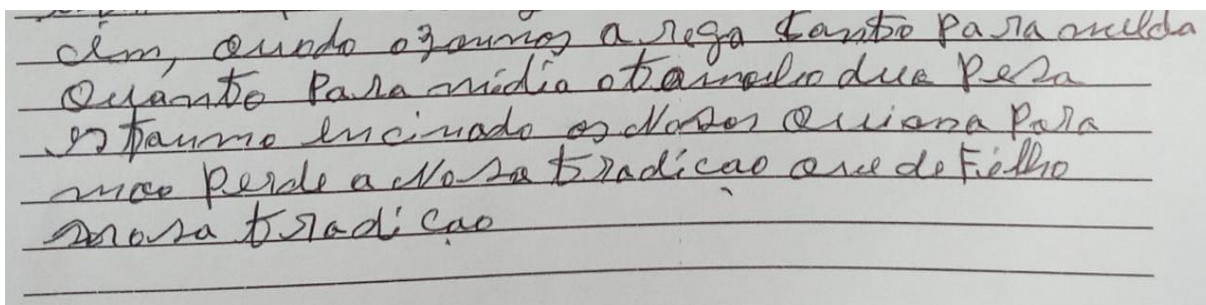 cim, qundo ozoumos a rega tanto Para muda
Quanto Para midia o tamanho due Peza
es taumo encinado os Nosos Quiana Para
nao Perde a Nosa tradicao que de Fielho
nosa tradi cao